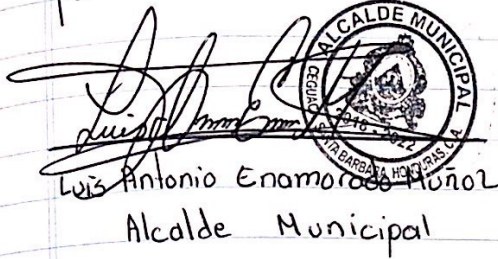 ALCALDE MUNICIPAL
CEGUACA
2018 - 2022
SANTA BARBARA, HONDURAS, C.A.
Luis
Luis Antonio Enamorado Muñoz
Alcalde Municipal